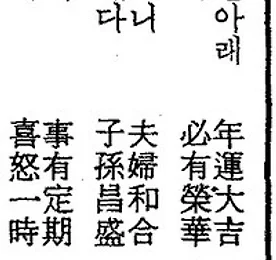 아래 年運大吉
必有榮華
니 夫婦和合
다 子孫昌盛
事有定期
喜怒一時